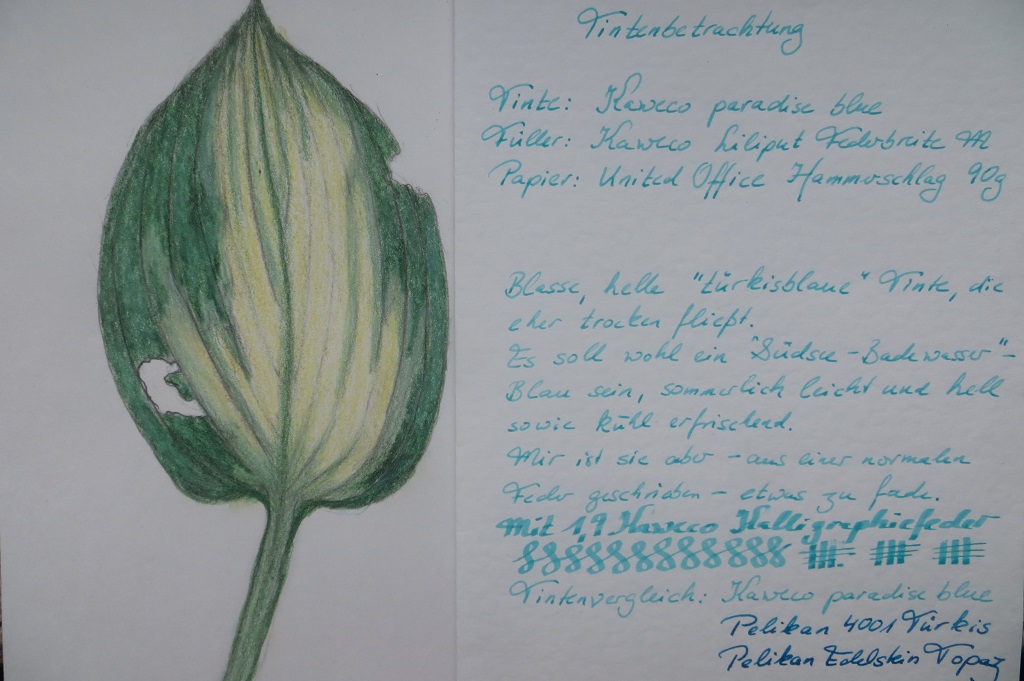 Tintenbetrachtung
Tinte: Kaweco paradise blue
Füller: Kaweco Liliput Federbreite M
Papier: United Office Hammerschlag 90g
Blasse, helle "türkisblaue" Tinte, die
eher trocken fließt.
Es soll wohl ein "Südsee-Badewasser"-
Blau sein, sommerlich leicht und hell
sowie kühl erfrischend.
Mir ist sie aber - aus einer normalen
Feder geschrieben - etwas zu fade.
Mit 1,9 Kaweco Kalligraphiefeder
Tintenvergleich: Kaweco paradise blue
Pelikan 4001 Türkis
Pelikan Edelstein Topaz